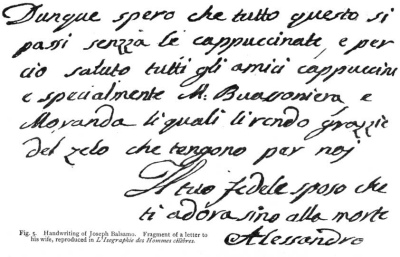 Dunque spero che tutto questo si
passi senzza le cappuccinate, e per
cio saluto tutti gli amici cappuccini
e specialmente M. Buassoniera e
Moranda li quali li rendo grazzie
del zelo che tengono per noj
Il tuo fedele sposo che
ti adora sino alla morte
Alessandro
Fig. 5. Handwriting of Joseph Balsamo. Fragment of a letter to
his wife, reproduced in L'Isographie des Hommes célèbres.